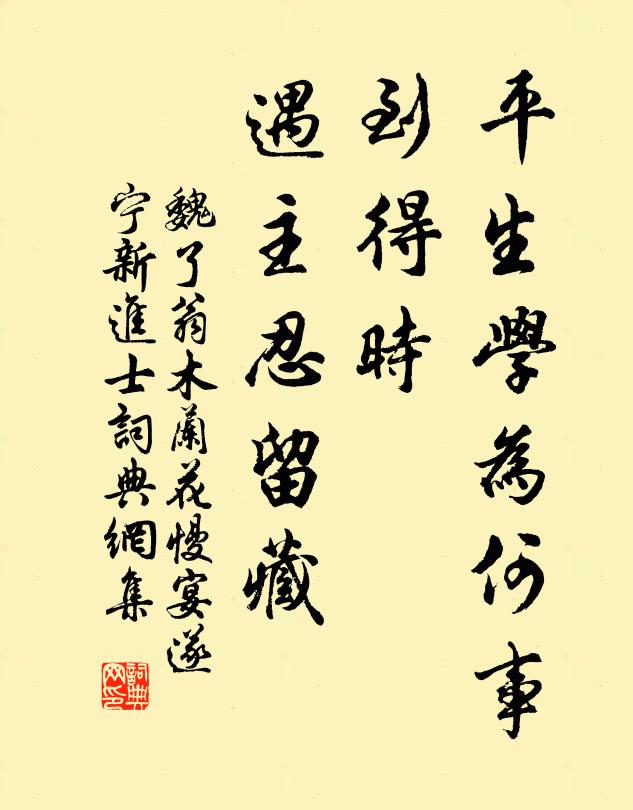 平生學為何事
到得時
遇主忍留藏
魏了翁木蘭花慢宴遂
宁新進士詞典網集
詞典
网印